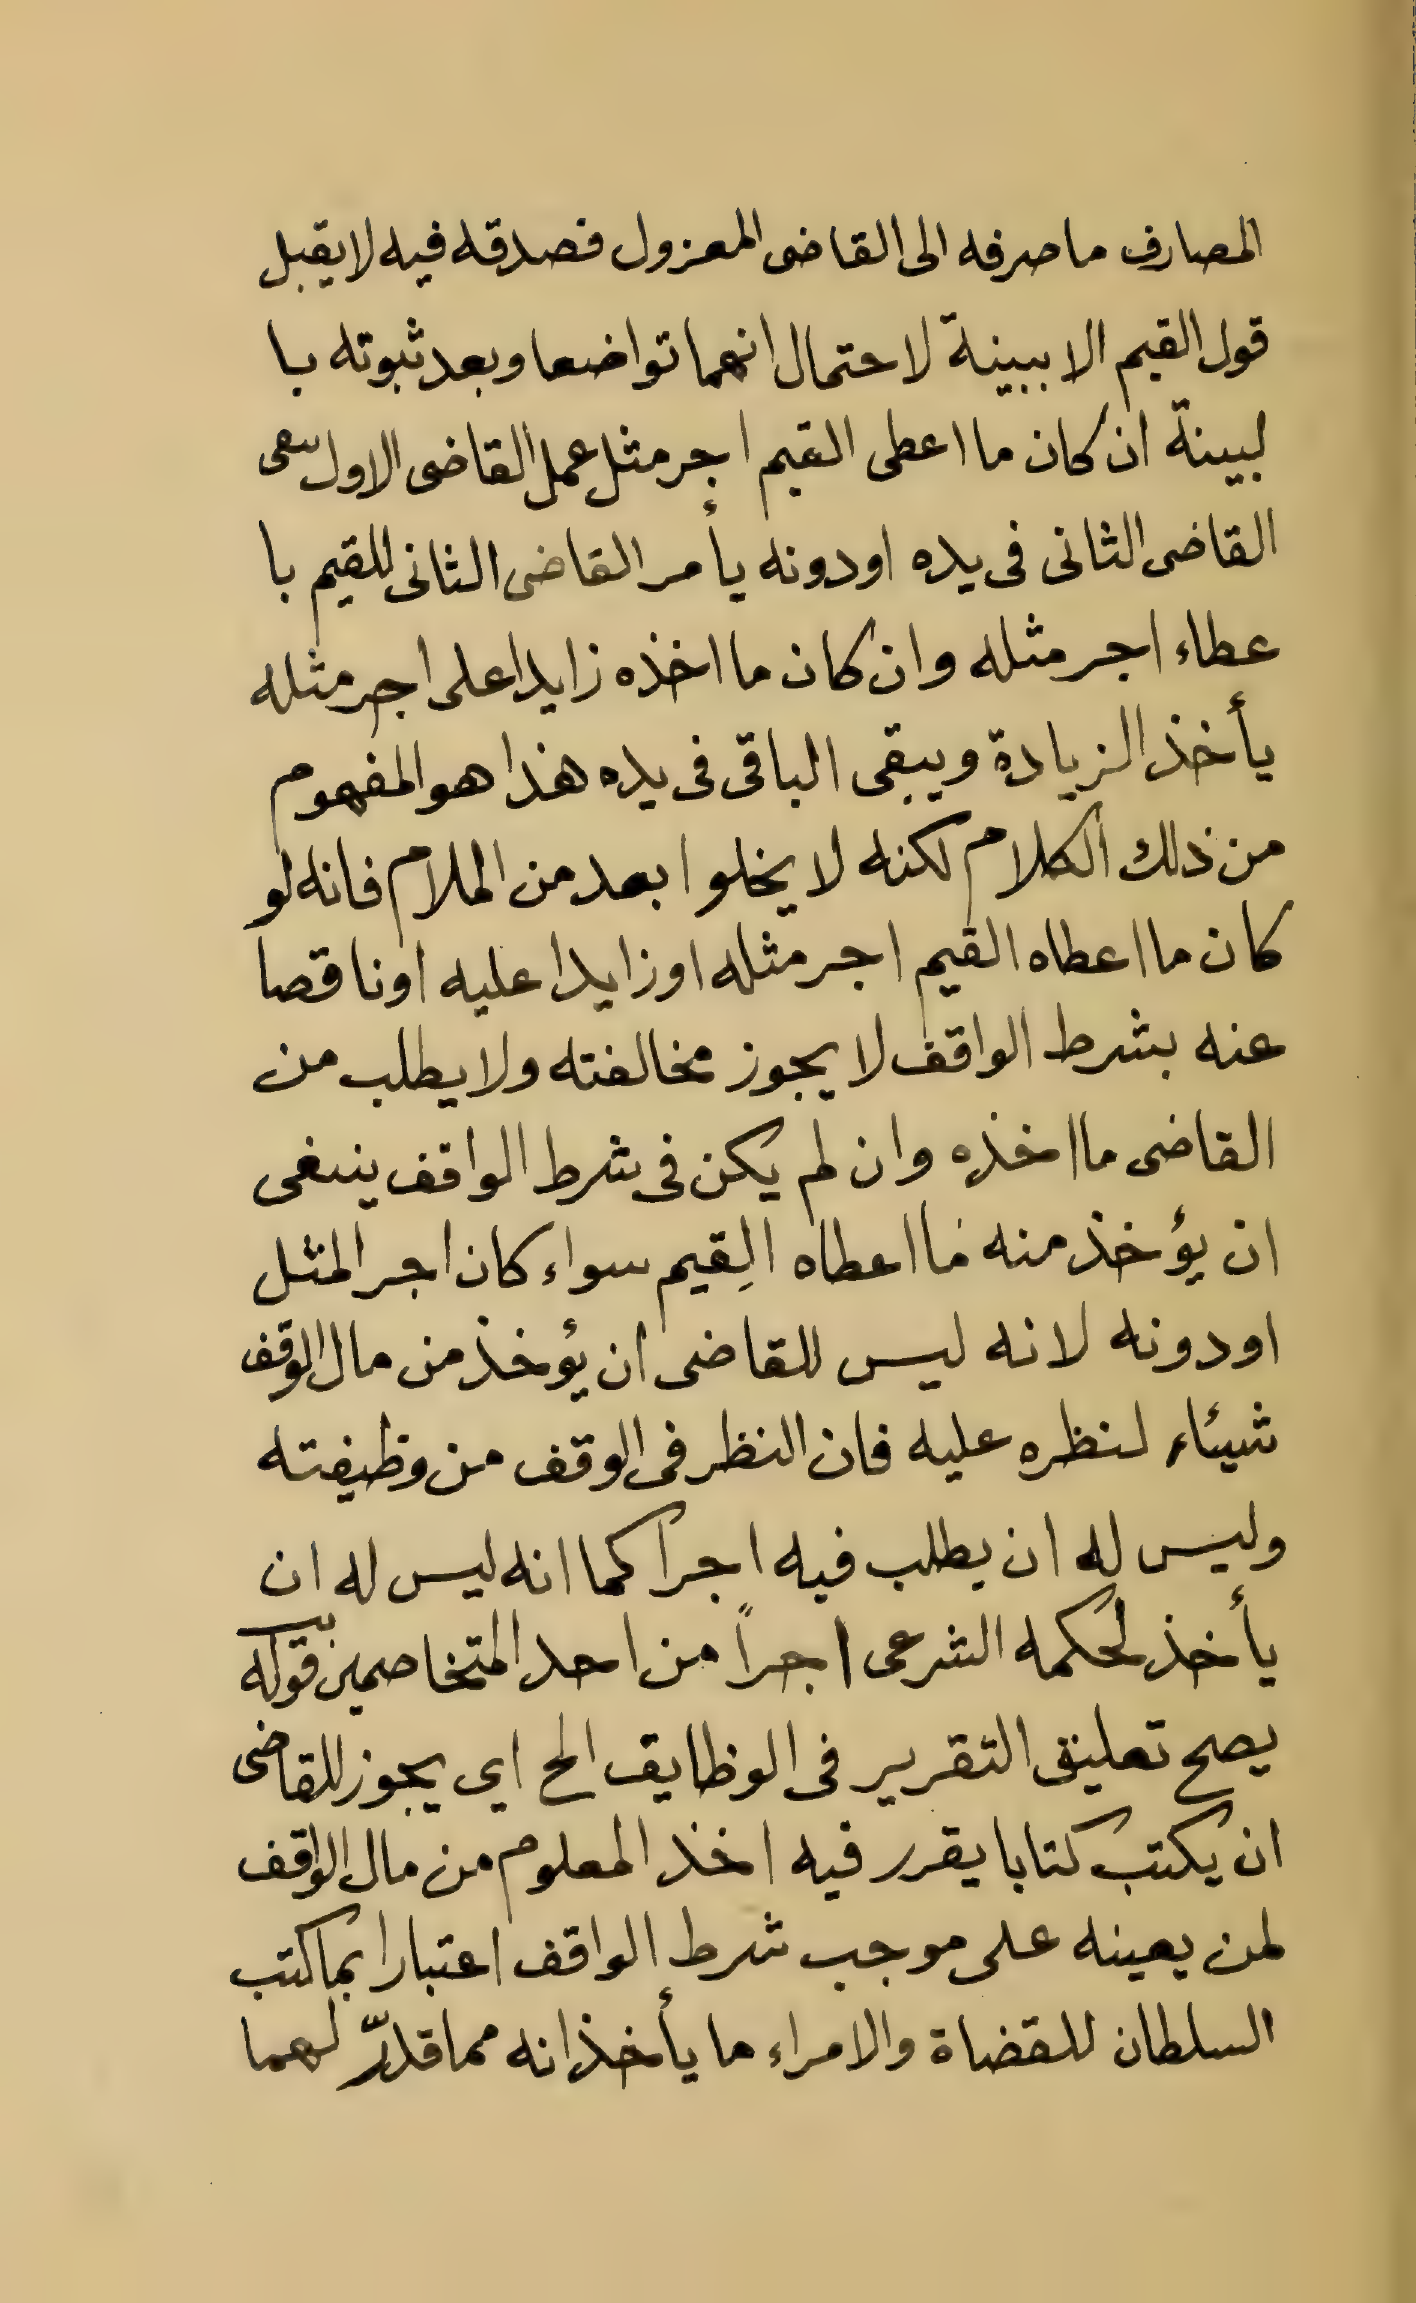 المصارف ما صرفه الى القاضى المعزول فصدقه فيه لا يقبل
قول القيم الا ببينة لا حتمال انهما تواضعا وبعد ثبوته با
لبينة ان كان ما اعطى القيم اجر مثل عمل القاضى الاول
القاضى الثانى فى يده او دونه يأمر القاضى الثانى للقيم با
عطاء اجر مثله وان كان ما اخذه زايدا على اجر مثله
يأخذ الزيادة ويبقى الباقى فى يده هذا هو المفهوم
من ذلك الكلام لكنه لا يخلوا بعد من الملام فانه لو
كان ما اعطاه القيم اجر مثله او زايدا عليه او ناقصا
عنه بشرط الواقف لا يجوز مخالفته ولا يطلب من
القاضى ما اخذه وان لم يكن فى شرط الواقف ينبغى
ان يؤخذ منه ما اعطاه القيم سواء كان اجر المثل
او دونه لانه ليس للقاضى ان يؤخذ من مال الوقف
شيئاء لنظره عليه فان النظر فى الوقف من وظيفته
وليس له ان يطلب فيه اجرا كما انه ليس له ان
يأخذ لحكمه الشرعى اجراً من احد المتخاصمين قوله
يصح تعليق التقرير فى الوظايف الخ اي يجوز للقاضى
ان يكتب كتابا يقرر فيه اخذ المعلوم من مال الواقف
لمن يعينه على موجب شرط الواقف اعتبارا بما كتب
السلطان للقضاة والامراء ما يأخذانه مما قدرّ لهما